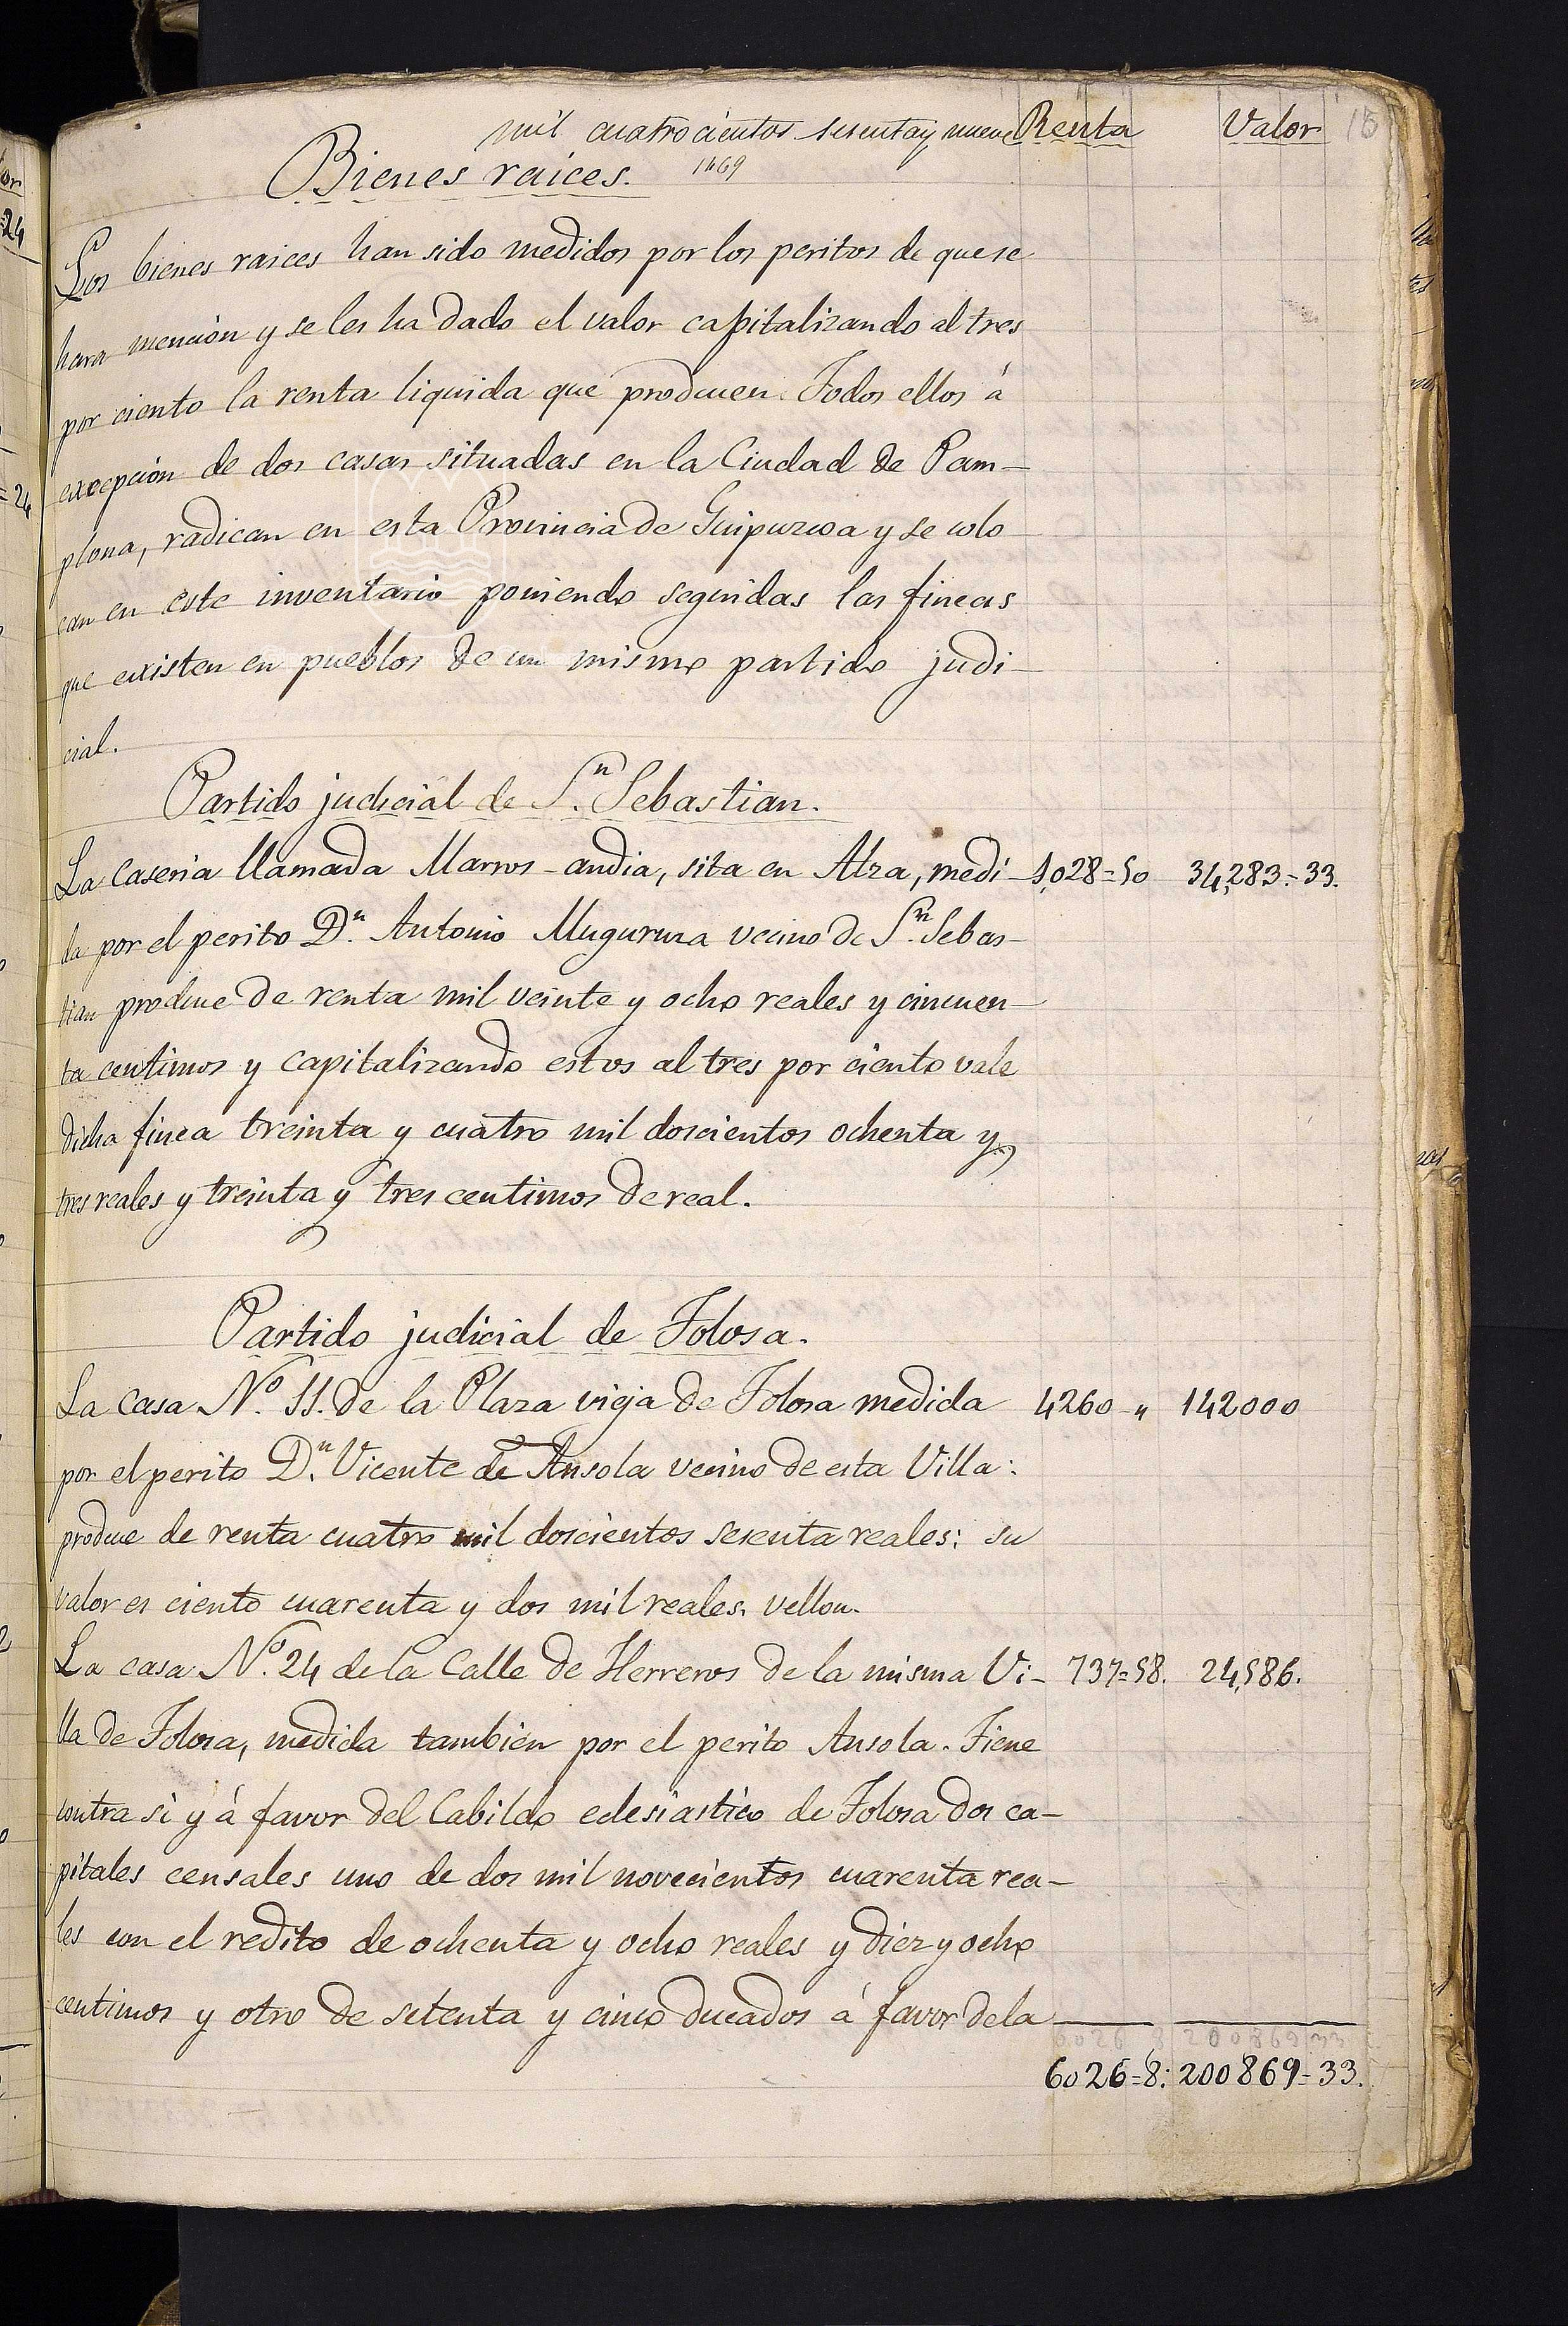 mil cuatrocientos sesenta y nueve Renta Valor 15
Bienes raices. 1469
Los bienes raices han sido medidos por los peritos de que se
hara mención y se les ha dado el valor capitalizando al tres
por ciento la renta liquida que producen. Todos ellos á
excepción de dos casas situadas en la Ciudad de Pam-
plona, radican en esta Provincia de Guipuzcoa y se colo-
can en este inventario poniendo seguidas las fincas
que existen en pueblos de un mismo partido judi-
cial.
Partido judicial de Sn. Sebastian.
La Caseria llamada Marros-andia, sita en Alza, medi- 1,028=50 34,283.=33.
da por el perito Dn. Antonio Mugururza vecino de Sn. Sebas-
tian produce de renta mil veinte y ocho reales y cincuen-
ta centimos y capitalizando estos al tres por ciento vale
dicha finca treinta y cuatro mil doscientos ochenta y
tres reales y treinta y tres centimos de real.
Partido judicial de Tolosa.
La Casa No. 11. de la Plaza vieja de Tolosa medida 4260 " 142000
por el perito Dn. Vicente de Ansola vecino de esta Villa:
produce de renta cuatro mil doscientos sesenta reales: su
valor es ciento cuarenta y dos mil reales. vellon.
La casa No. 24 de la Calle de Herreros de la misma Vi- 737=58. 24,586.
lla de Tolosa, medida tambien por el perito Ansola. Tiene
contra si y á favor del Cabildo eclesiastico de Tolosa dos ca-
pitales censales uno de dos mil novecientos cuarenta rea-
les con el redito de ochenta y ocho reales y diez y ocho
centimos y otro de setenta y cinco ducados á favor de la
6026 8 200869 33
6026=8: 200869=33.